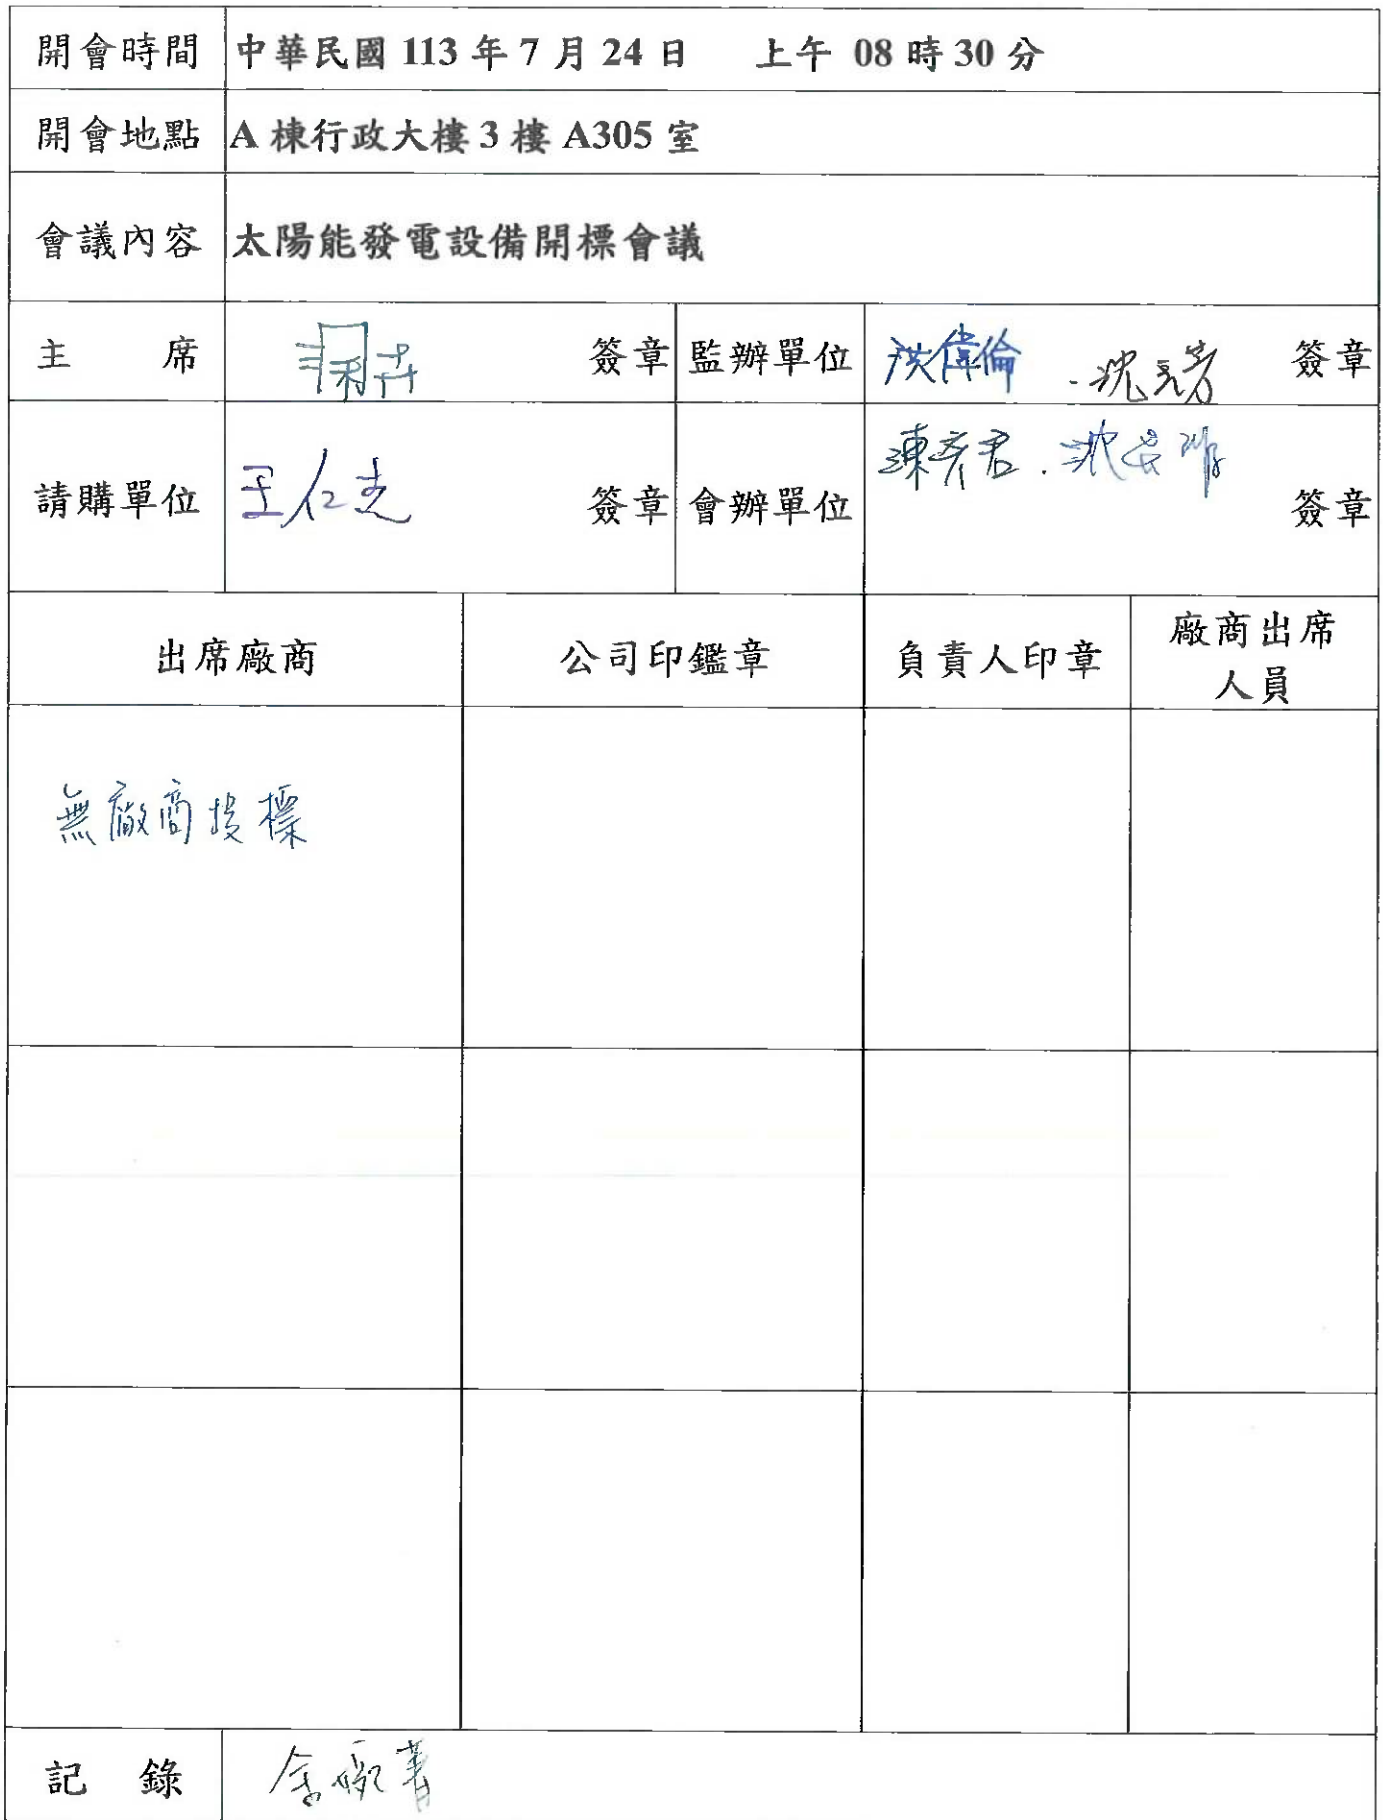 開會時間 中華民國 113 年 7 月 24 日 上午 08 時 30 分
開會地點 A 棟行政大樓 3 樓 A305 室
會議內容 太陽能發電設備開標會議
主 席 簽章 監辦單位 洪偉倫 簽章
請購單位 王仁志 簽章 會辦單位 陳彥君 簽章
出席廠商 公司印鑑章 負責人印章 廠商出席
人員
無廠商投標
記 錄